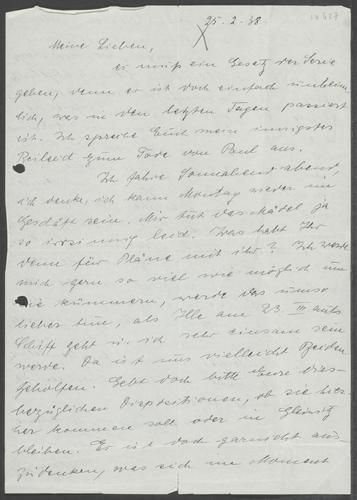 25. 2. 38.
Meine Lieben,
es muß ein Gesetz der Serie
geben, denn es ist doch einfach unheim
lich, was in den letzten Tagen passiert
ist. Ich spreche Euch mein innigstes
Beileid zum Tode von Paul aus.
Ich fahre Sonnabend abend,
ich denke, ich kann Montag wieder im
Geschäft sein. Mir tut das Mädel ja
so irrsinnig leid. Was habt Ihr
denn für Pläne mit ihr? Ich werde
mich gern so viel wie möglich um
sie kümmern, werde das umso
lieber tun, als Ille am 23. III aufs
Schiff geht u. ich sehr einsam sein
werde. Da ist uns vielleicht Beiden
geholfen. Gebt doch bitte Eure dies-
bezüglichen Dispositionen, ob sie hier
her kommen soll oder in Gleiwitz
bleiben. Es ist doch garnicht aus
zudenken, was sich im Moment